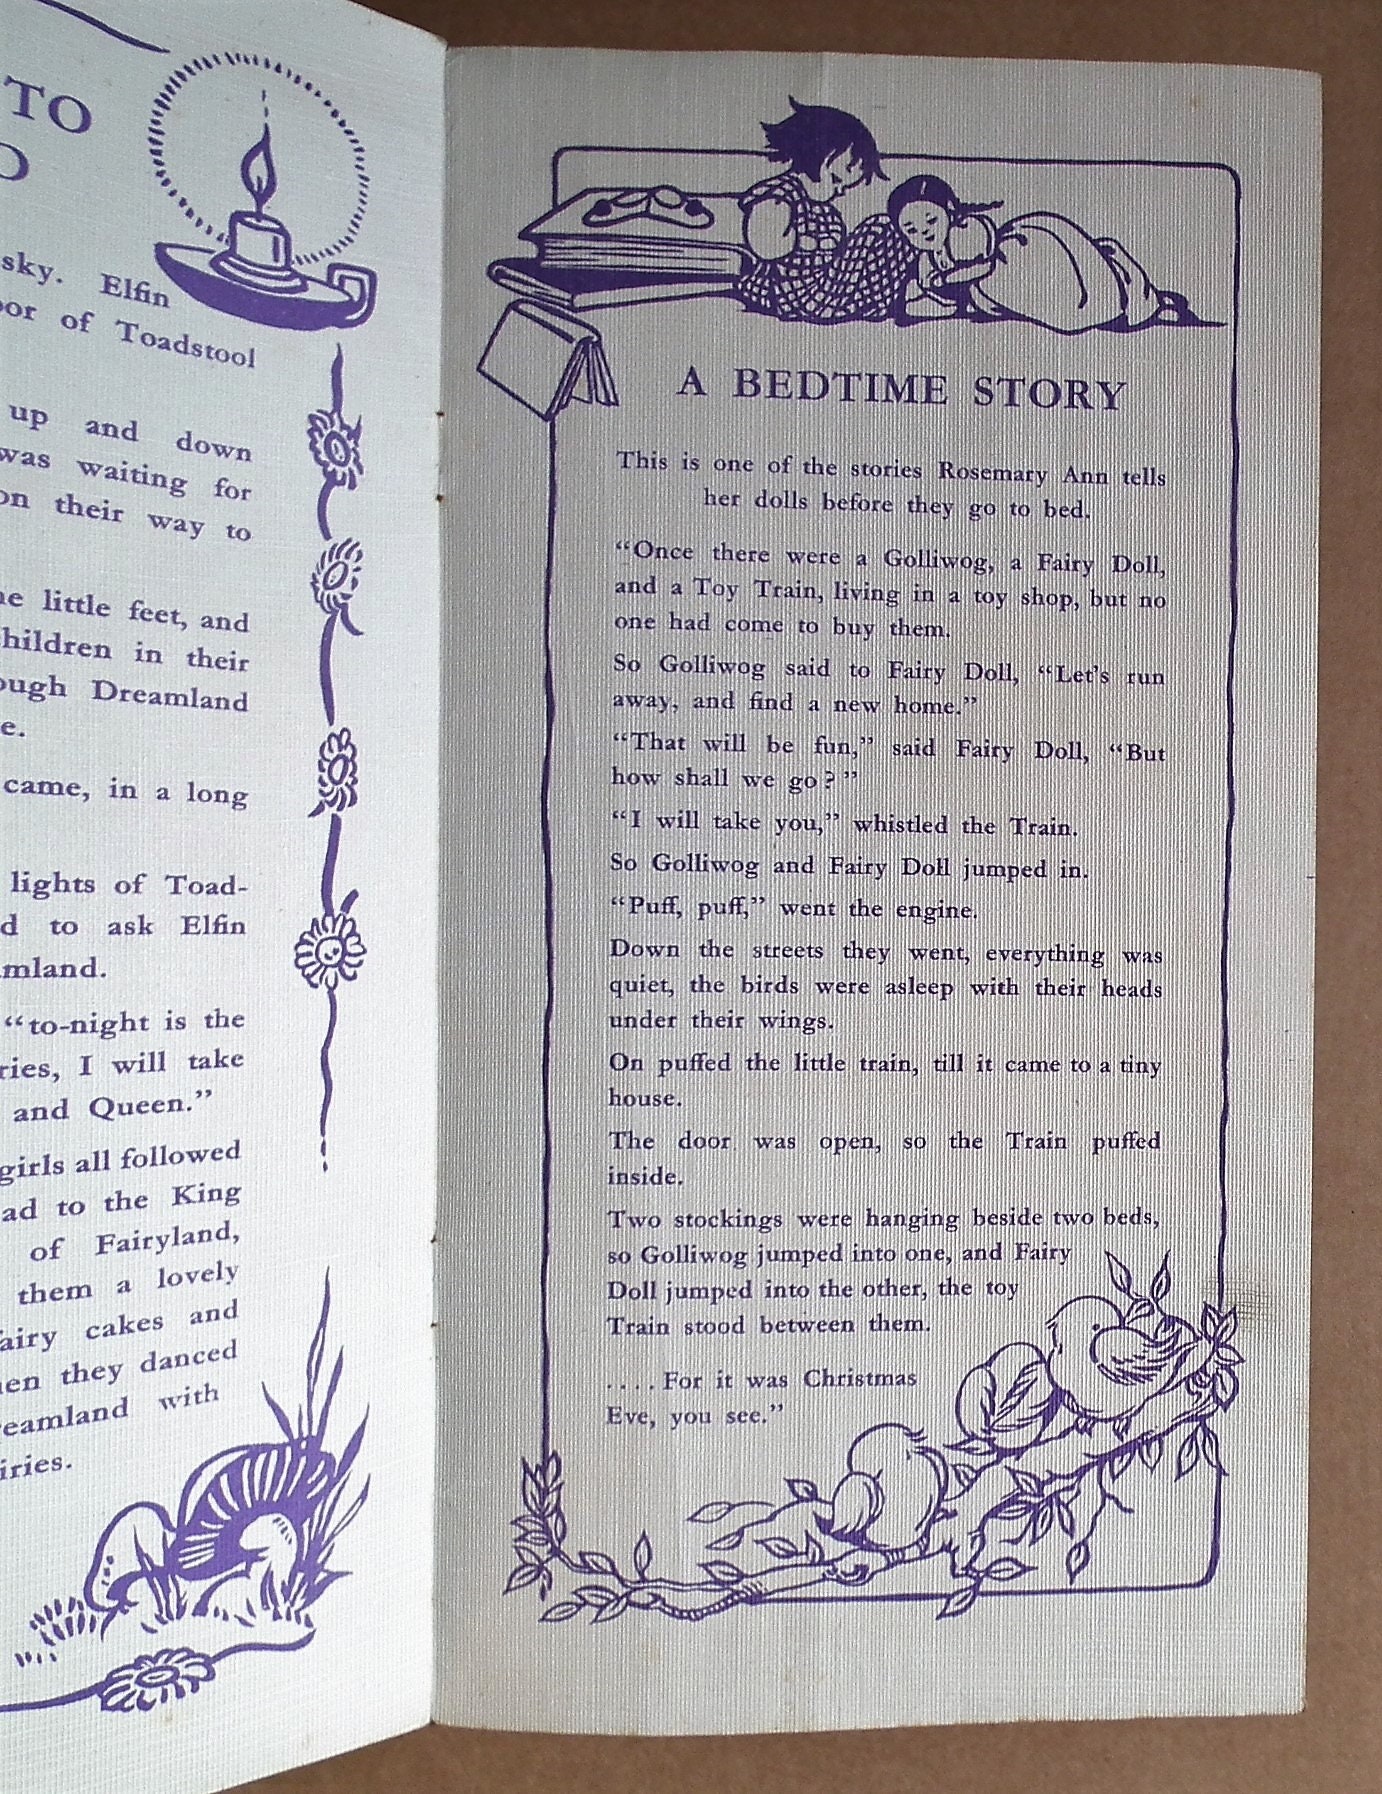 TO
sky. Elfin
of Toadstool
up and down
was waiting for
on their way to
little feet, and
children in their
Dreamland
came, in a long
lights of Toad-
to ask Elfin
“to-night is the
I will take
and Queen.”
girls all followed
to the King
of Fairyland,
them a lovely
cakes and
they danced
with
A BEDTIME STORY
This is one of the stories Rosemary Ann tells
her dolls before they go to bed.
“Once there were a Golliwog, a Fairy Doll,
and a Toy Train, living in a toy shop, but no
one had come to buy them.
So Golliwog said to Fairy Doll, “Let's run
away, and find a new home.”
“That will be fun,” said Fairy Doll, “But
how shall we go?”
“I will take you,” whistled the Train.
So Golliwog and Fairy Doll jumped in.
“Puff, puff,” went the engine.
Down the streets they went, everything was
quiet, the birds were asleep with their heads
under their wings.
On puffed the little train, till it came to a tiny
house.
The door was open, so the Train puffed
inside.
Two stockings were hanging beside two beds,
so Golliwog jumped into one, and Fairy
Doll jumped into the other, the toy
Train stood between them.
....For it was Christmas
Eve, you see.”